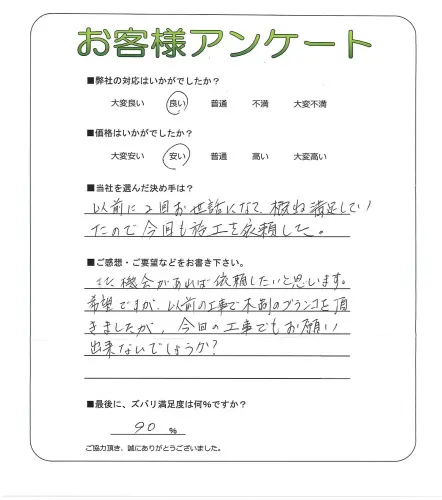 お客様アンケート
■弊社の対応はいかがでしたか?
大変良い 良い 普通 不満 大変不満
■価格はいかがでしたか?
大変安い 安い 普通 高い 大変高い
■当社を選んだ決め手は?
以前に2回お世話になって、概ね満足してい
たので今回も施工を依頼した。
■ご感想・ご要望などをお書き下さい。
また機会があれば依頼したいと思います。
希望ですが、以前の工事で木製のブランコを頂
きましたが、今回の工事でもお願い
出来ないでしょうか?
■最後に、ズバリ満足度は何%ですか?
90 %
ご協力頂き、誠にありがとうございました。